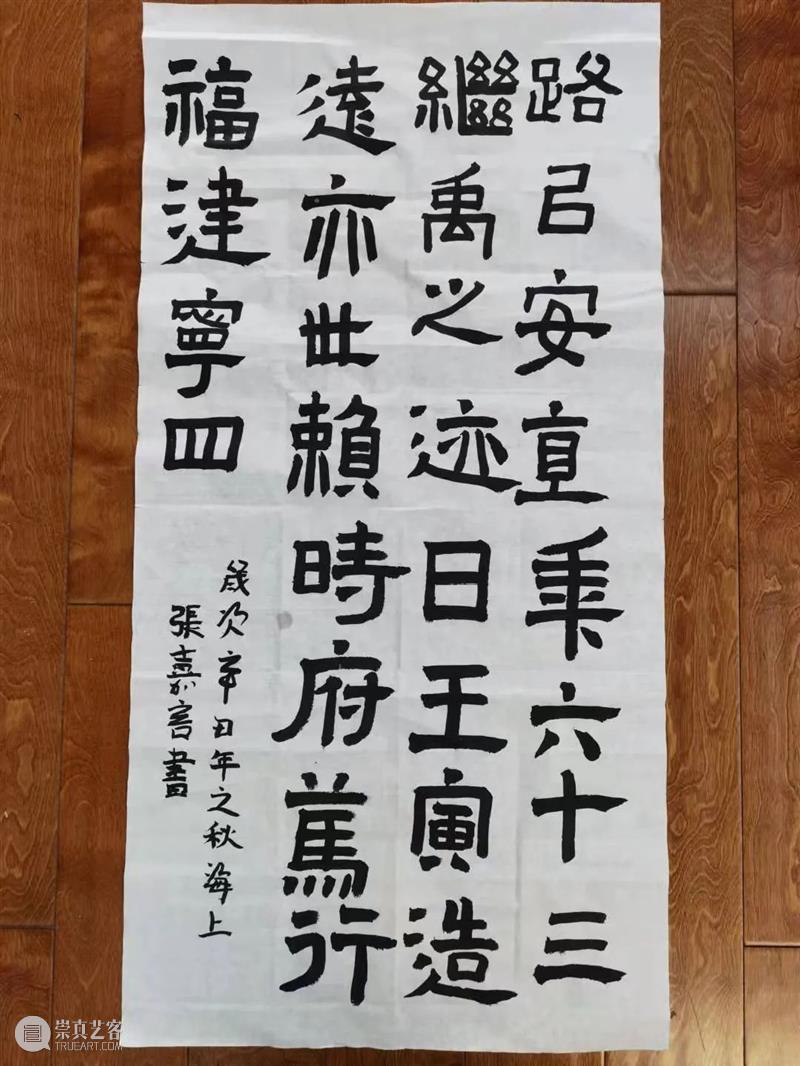 路㠯安直乘六十三
繼禹之迹日王寅造
遠亦世賴時府篤行
福建寧四
歲次辛丑年之秋海上
張嘉言書
崇真艺客
TRUEART.COM